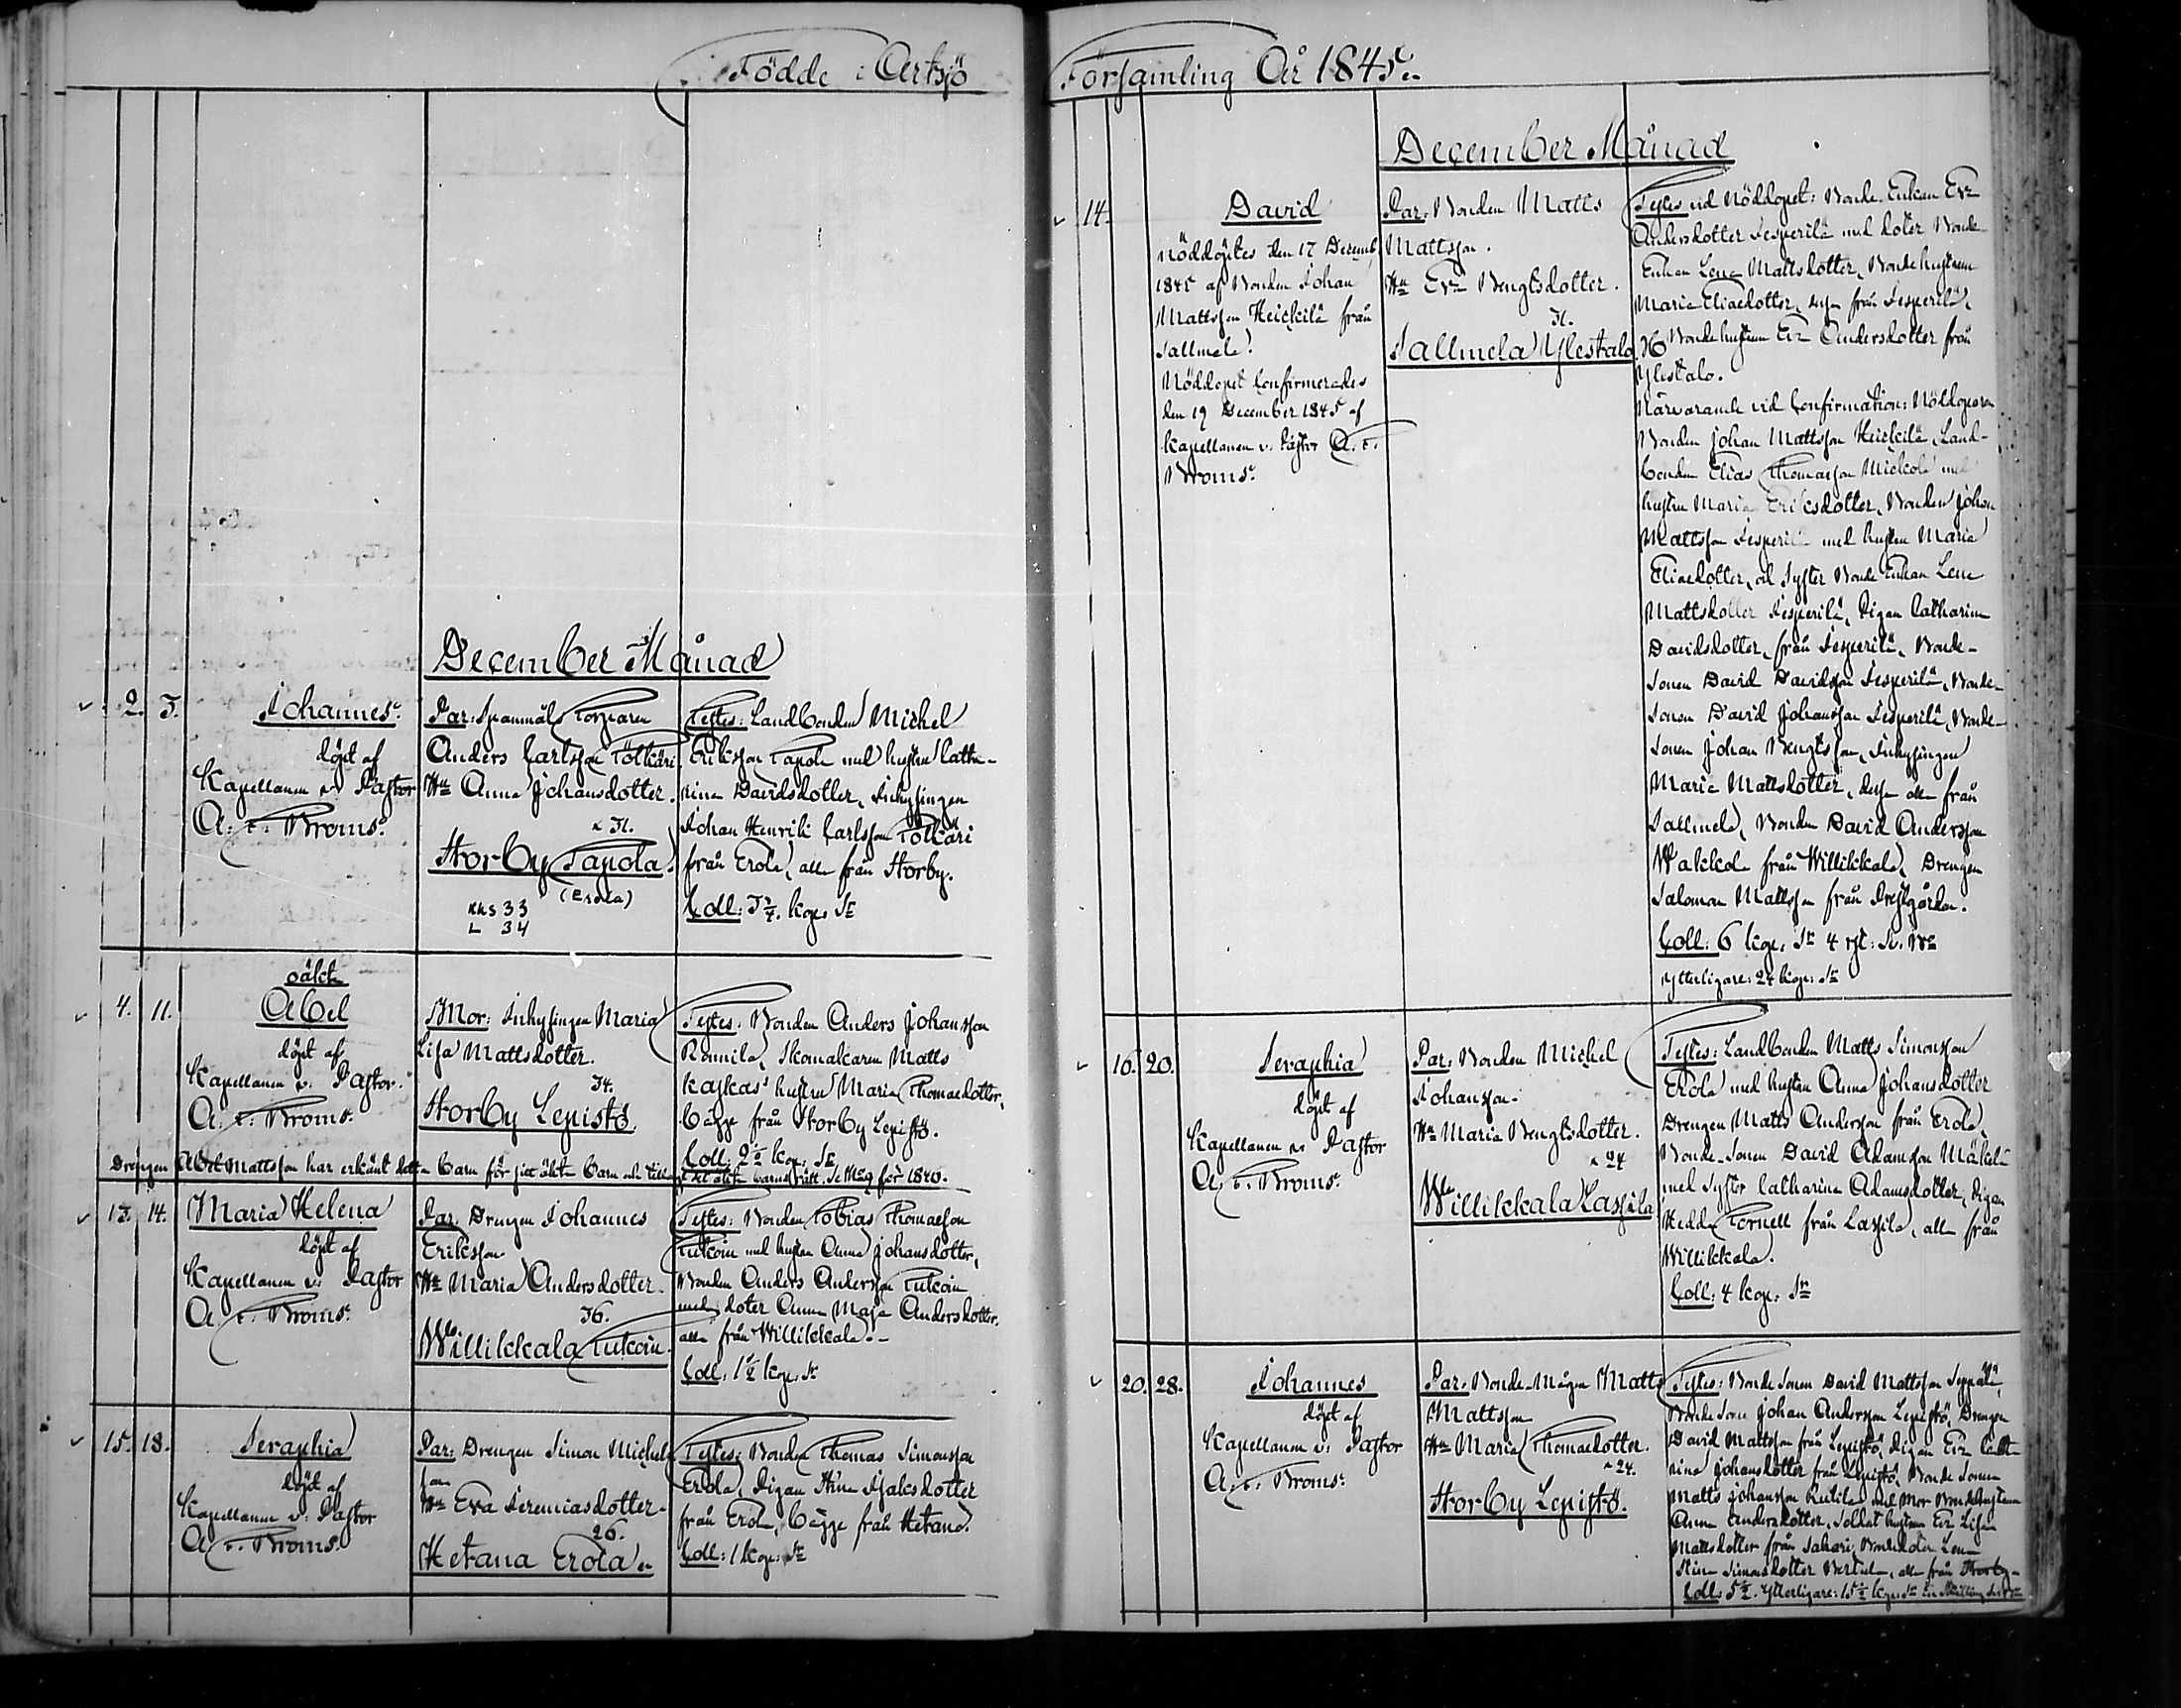 Födde i Artsjö
December Månad
2. 3. Johannes.
döpt af
Kapellanen v. Pastor
A. v. Broms.
Par: Torparen
Anders Carlsson Tötkäri
Hu Anna Johansdotter.
31.
Storby Tapola
(Erola)
RKS 33
L 34
Testes: Landbonden Michel
Eriksson Tapola med hustru Catha-
rina Davidsdotter, Inhysingen
Johan Henrik Carlsson Tötkäri
från Erola, alla från Storby.
Coll: 3 kop. Sr
oäkta
4. 11. Abel
döpt af
Kapellanen v. Pastor
A. v. Broms.
Mor: Inhysingen Maria
Lisa Mattsdotter.
34.
Storby Lepistö.
Testes: Bonden Anders Johansson
Rannila, Skomakaren Matts
hustru Maria Thomasdotter,
bägge från Storby Lepistö.
Coll: 2½ kop. Sr
Drengen Abel Mattsson har erkänt detta barn för sitt äkta barn för 1840.
13. 14. Maria Helena
döpt af
Kapellanen v. Pastor
A. v. Broms.
Par: Drengen Johannes
Eriksson
Hu Maria Andersdotter.
36.
Willikkala Tutoin
Testes: Bonden Tobias Thomasson
Tutoin med hustru Anna Johansdotter,
Bonden Anders Andersson Tutoin
med doter Anna Maja Andersdotter,
alla från Willikkala.
Coll: 1½ kop. Sr
15. 18. Seraphia
döpt af
Kapellanen v. Pastor
A. v. Broms.
Par: Drengen Simon Michels
son
Hu Eva Jeremiasdotter
26.
Hetana Erola
Testes: Bonden Thomas Simonsson
Erola, Pigan Stina Isaksdotter
från Erola, bägge från Hetana.
Coll: 1 kop. Sr
Församling År 1845.
December Månad
14. David
Nöddöptes den 17 Decemb.
1845 af Bonden Johan
Mattsson Heickilä från
Sallmela.
Nöddopet Confirmerades
den 19 December 1845 af
Kapellanen v. Pastor A. v.
Broms.
Par: Bonden Matts
Mattsson.
Hu Eva Bengtsdotter.
31.
Sallmela Ylestalo
Testes vid Nöddopet: Bonde Enkan Eva
Andersdotter Jesperilä med doter Bonde
Enkan Lena Mattsdotter, Bondehustrun
Maria Eliaedotter, från Jesperilä,
Bondehustrun Eva Andersdotter från
Ylestalo.
Närvarande vid Confirmation: Nöddöparen
Bonden Johan Mattsson Heickilä, Land-
bonden Elias Thomasson Mickola med
hustru Maria Ericsdotter, Bonden Johan
Mattsson Jesperilä med hustru Maria
Eliaedotter, och Syster Bonde Enkan Lena
Mattsdotter Jesperilä, Pigan Catharina
Davidsdotter, från Jesperilä, Bonde-
Sonen David Davidsson Jesperilä, Bonde-
Sonen David Johansson Jesperilä, Bonde-
Sonen Johan Bengtsson, Inhysingen
Maria Mattsdotter, alla från
Sallmela, Bonden David Andersson
Wakkola från Willikkala, Drengen
Salomon Mattsson från Prestgården.
Coll: 6 kop. Sr 4
Ytterligare: 24 kop. Sr
16. 20. Seraphia
döpt af
Kapellanen v. Pastor
A. v. Broms.
Par: Bonden Michel
Johansson.
Hu Maria Bengtsdotter.
24
Willikkala Lassila
Testes: Landbonden Matts Simonsson
Erola med hustru Anna Johansdotter
Drengen Matts Andersson från Erola,
Bonde-Sonen David Adamsson Mäkelä
med Syster Catharina Adamsdotter, Pigan
Hedda Tornell från Lassila, alla från
Willikkala.
Coll: 4 kop. Sr
20. 28. Johannes
döpt af
Kapellanen v. Pastor
A. v. Broms.
Par: Bonde-Mågen Matts
Mattsson
Hu Maria Thomasdotter.
24.
Storby Lepistö.
Testes: Bonde Sonen David Mattsson Seppälä,
Bonde Sonen Johan Andersson Lepistö, Drengen
David Mattsson från Lepistö, Pigan Eva Catha-
rina Johansdotter från Lepistö, Bonde Sonen
Matts Johansson med Mor Bondehustrun
Anna Andersdotter, Soldat hustrun Eva Lisa
Mattsdotter från
Stina Simonsdotter alla från Storby
Coll: 5½. Ytterligare: 15½ kop. Sr